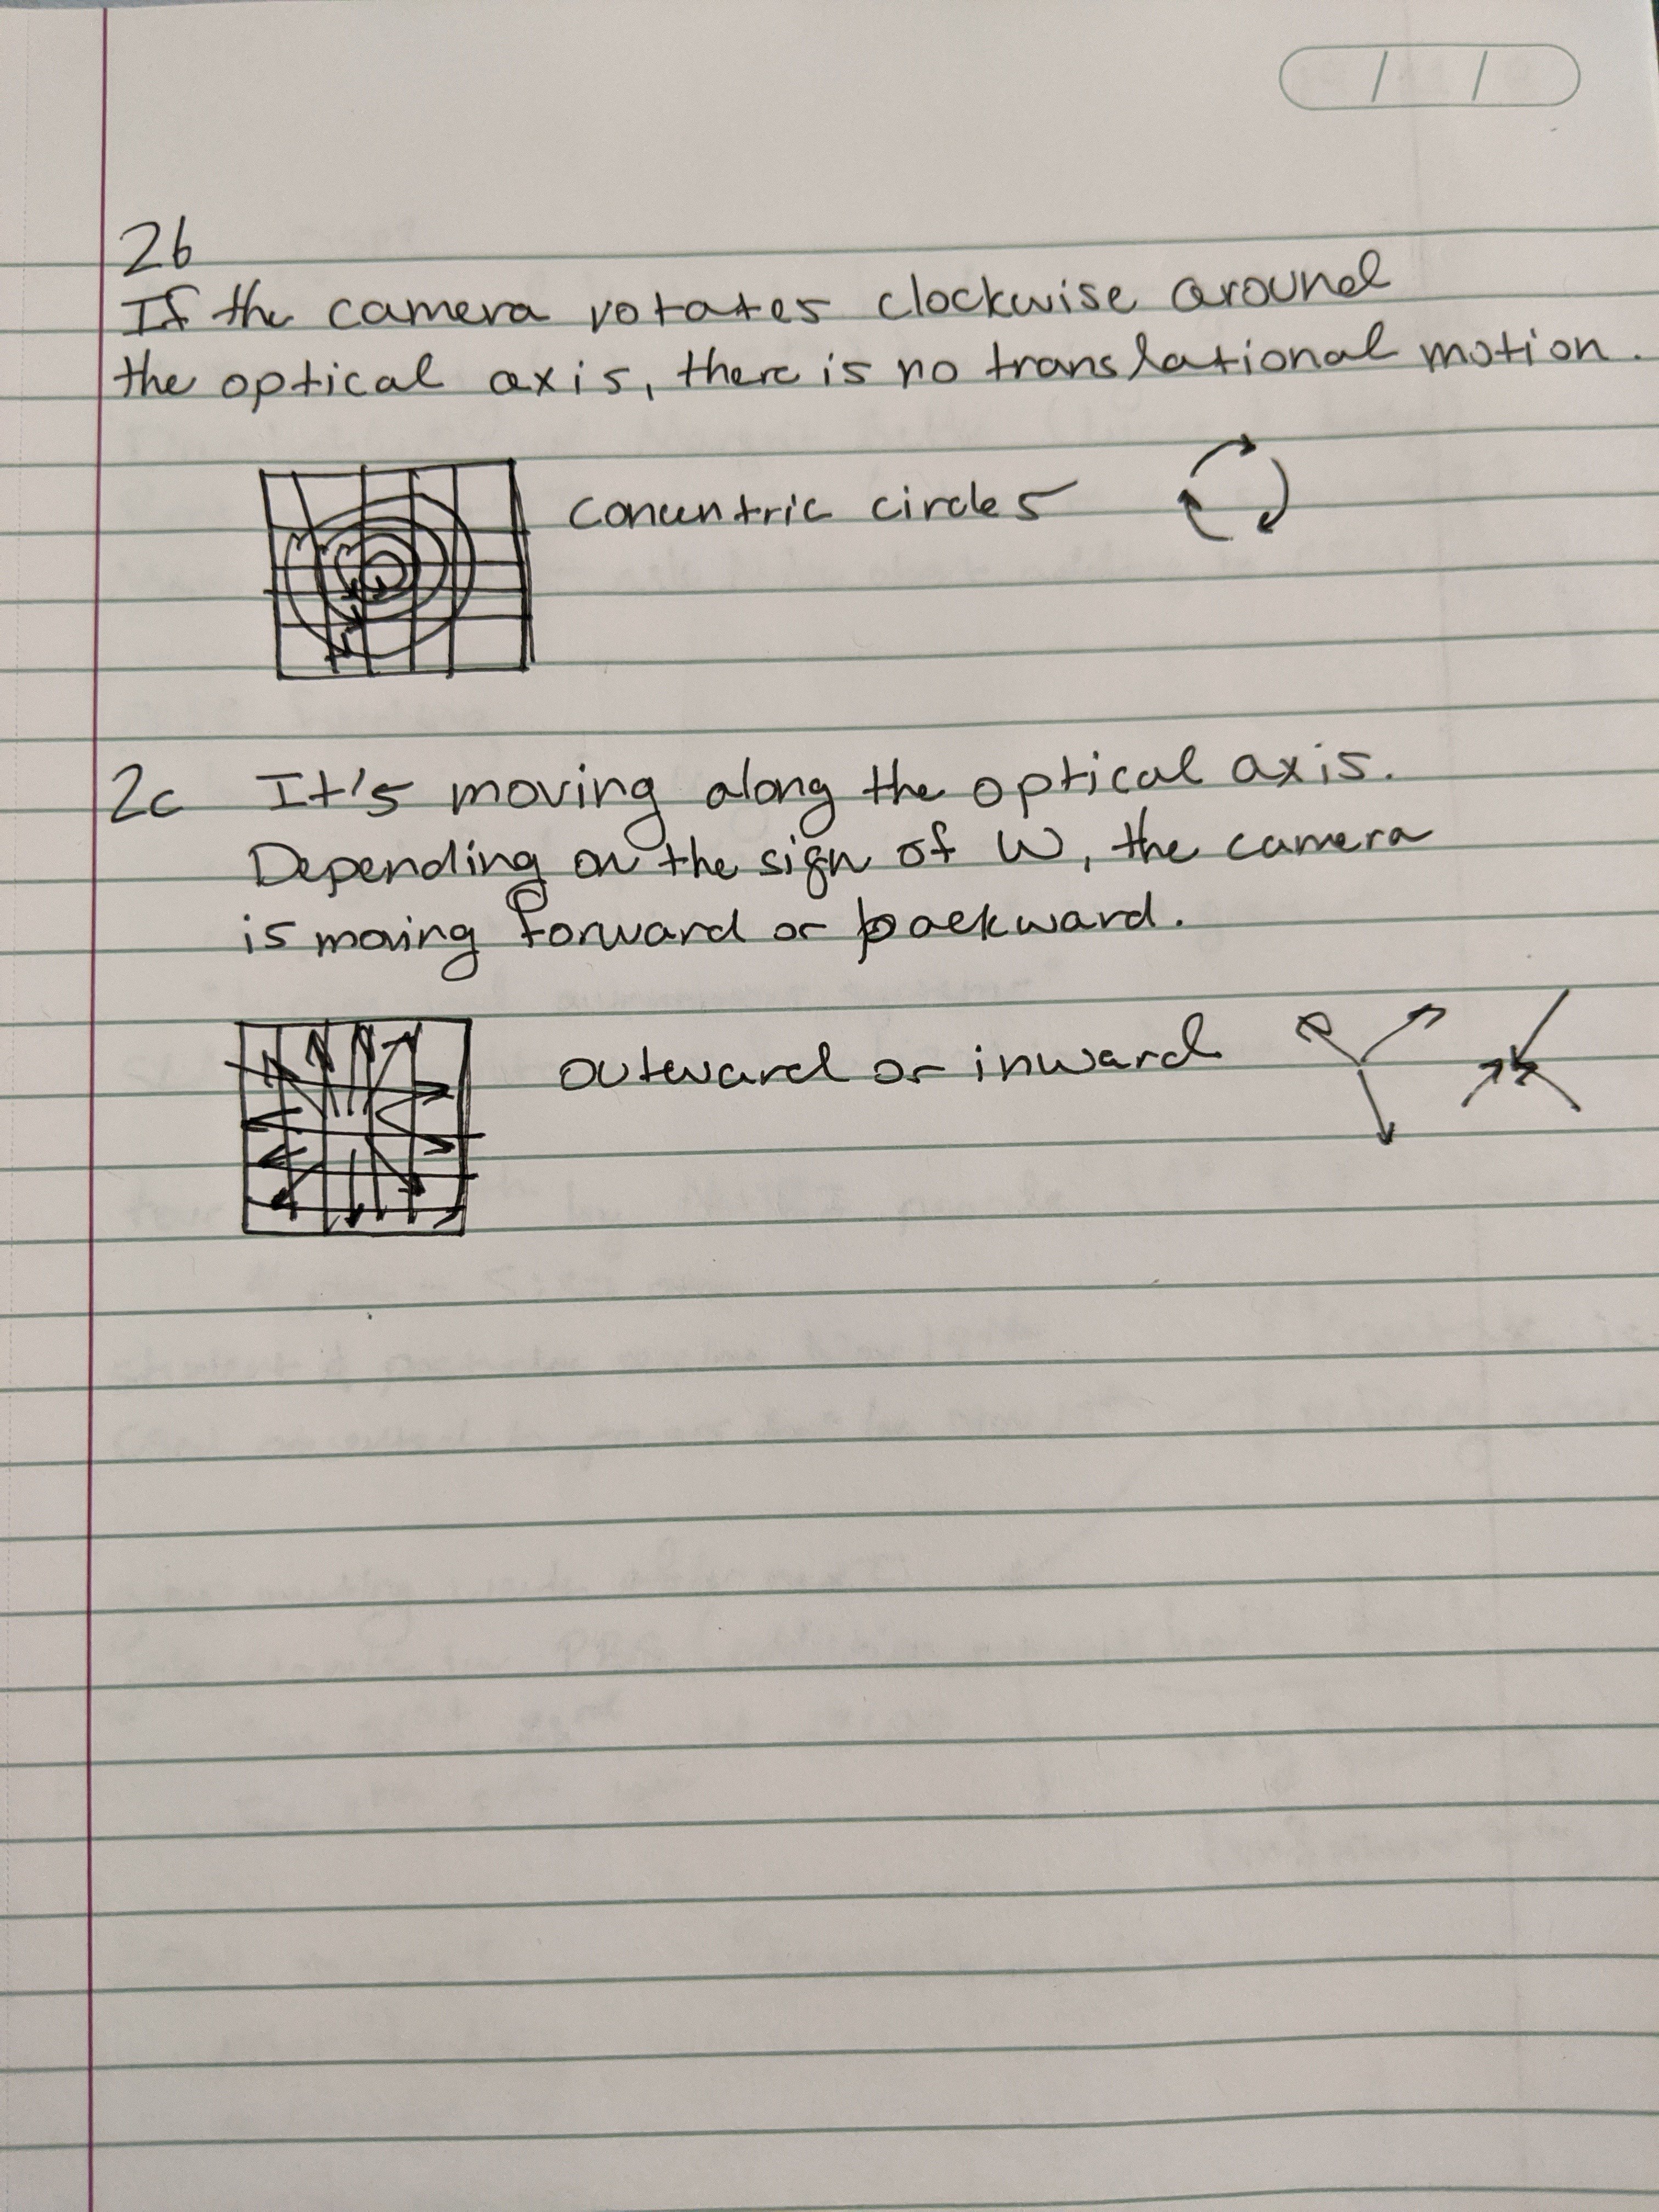 2b
If the camera rotates clockwise around
the optical axis, there is no translational motion.
concentric circles
2c It's moving along the optical axis.
Depending on the sign of W, the camera
is moving forward or backward.
outward or inward